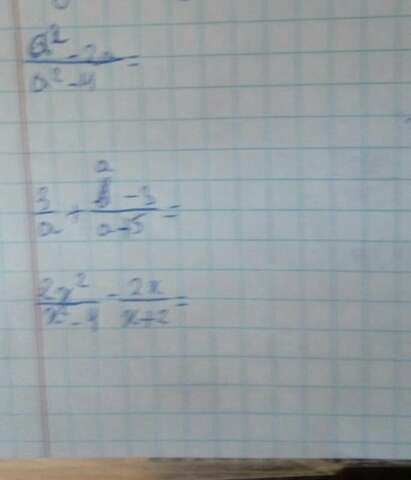 a²-2a
a²-4 =
a
3/a + -3/a-5 =
2x²/x²-4 - 2x/x+2 =